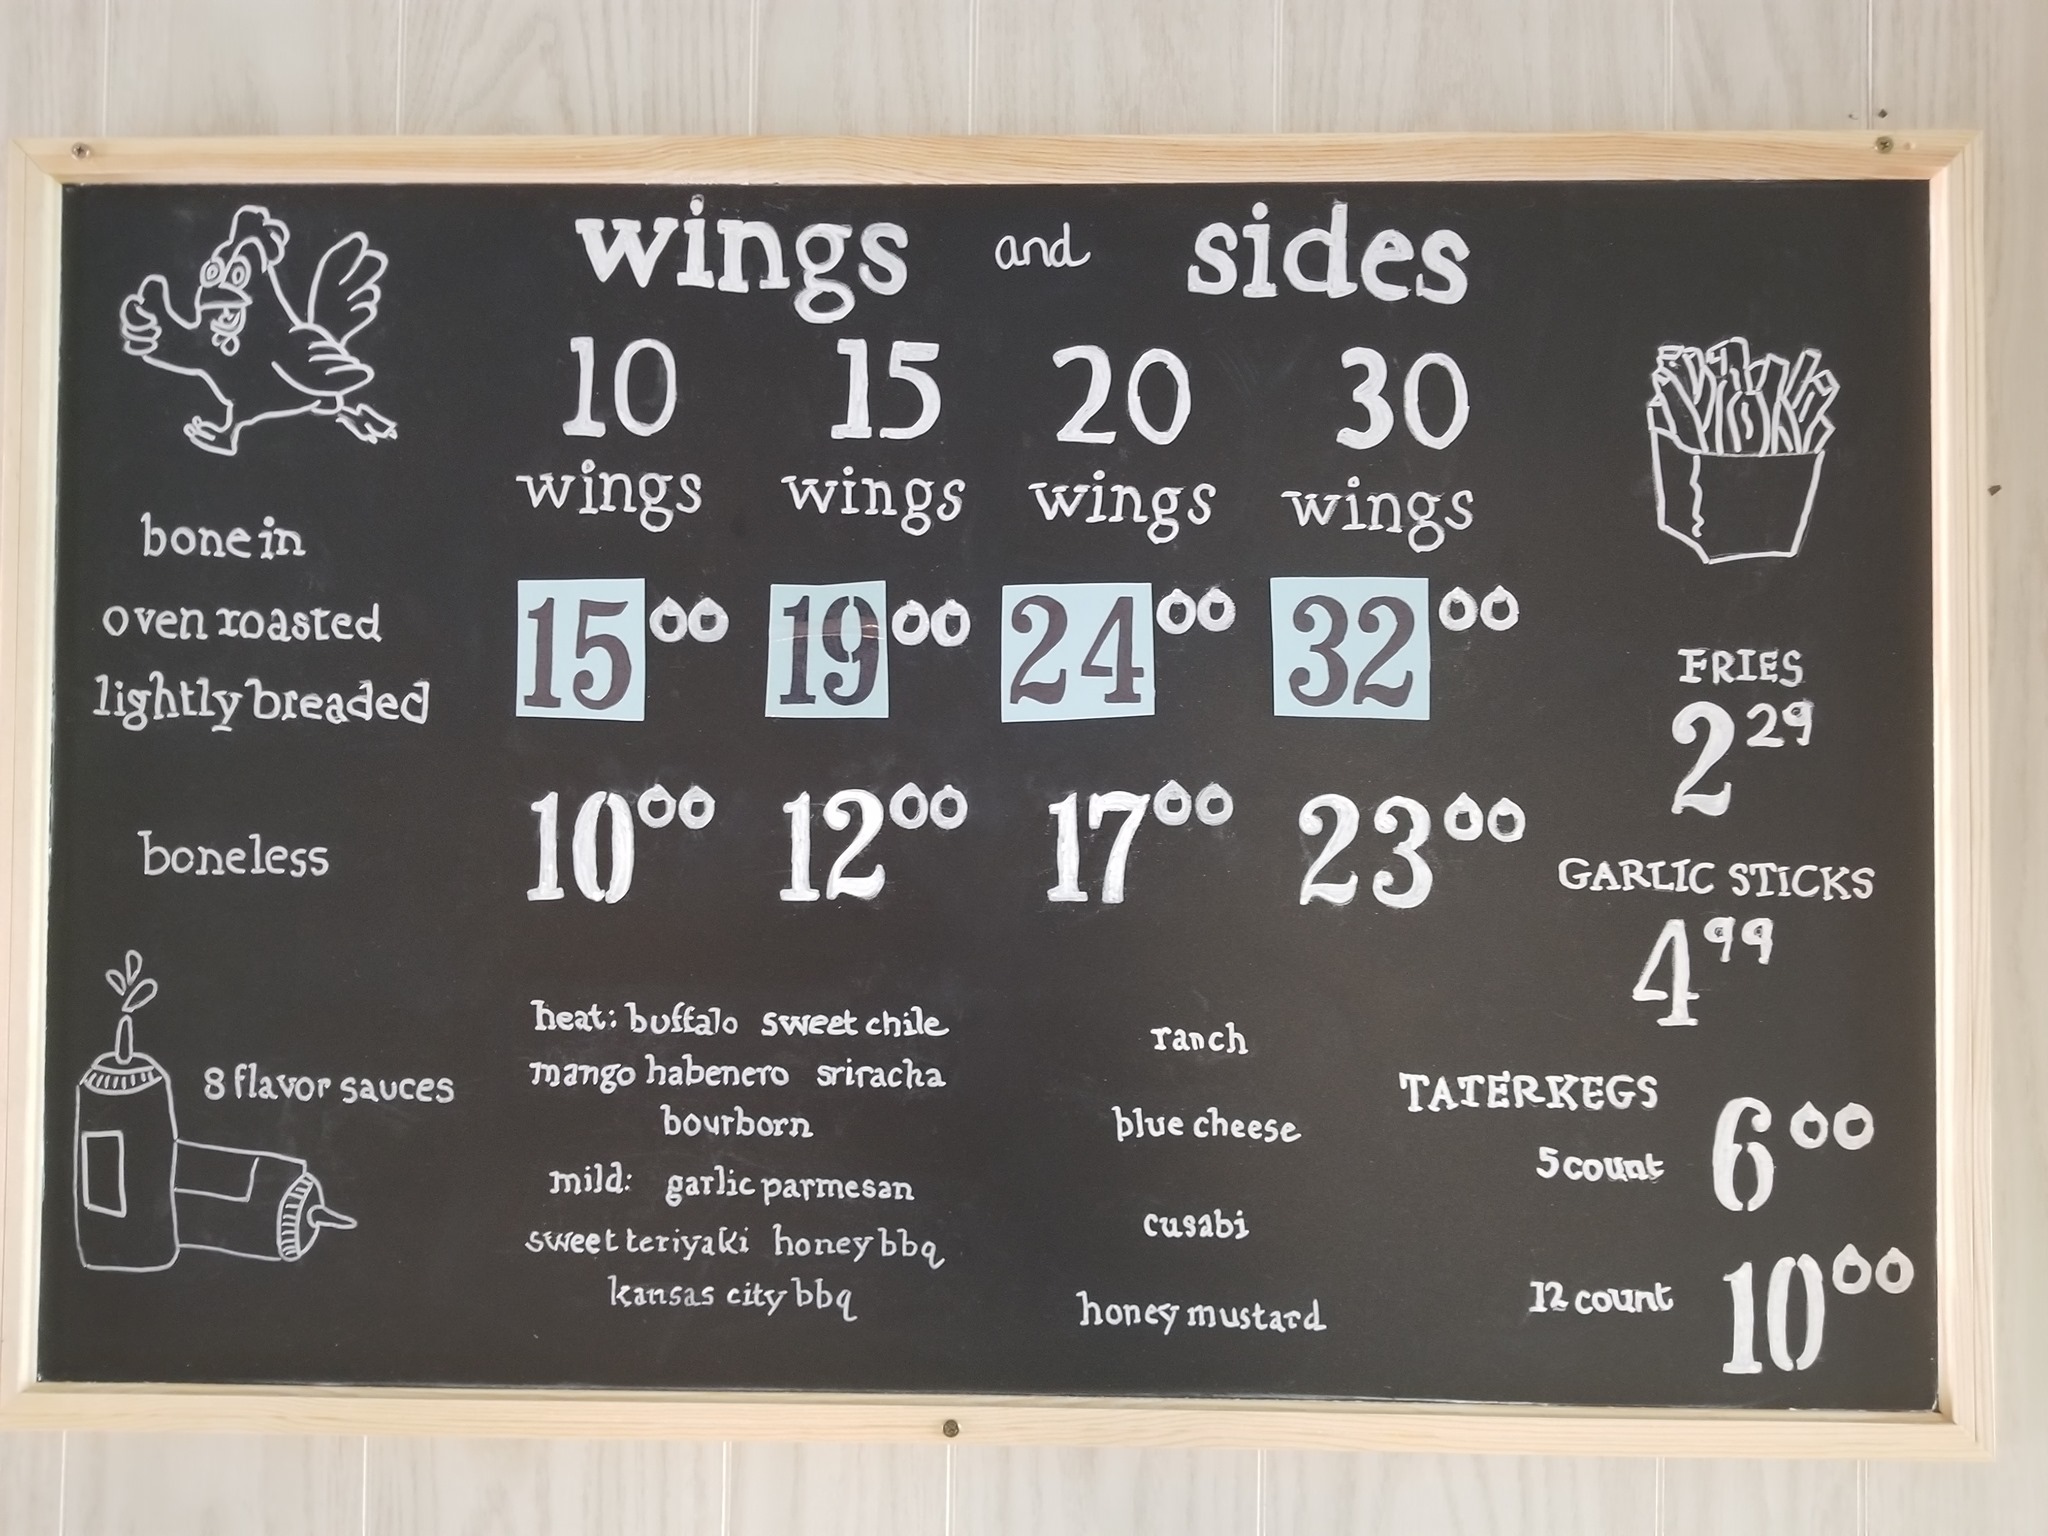 wings and sides
10 15 20 30
wings wings wings wings
bone in
oven roasted
lightly breaded
15 00 19 00 24 00 32 00
boneless
10 00 12 00 17 00 23 00
8 flavor sauces
heat: buffalo sweet chile
mango habenero sriracha
bourborn
mild: garlic parmesan
sweet teriyaki honey bbq
kansas city bbq
ranch
blue cheese
cusabi
honey mustard
FRIES
2 29
GARLIC STICKS
4 99
TATERKEGS
5 count 6 00
12 count 10 00